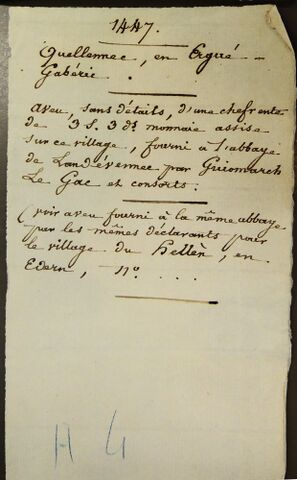 1447.
Quellennec, en Ergué-
Gabéric.
Aveu, sans détails, d'une chefrente
de 3 s. 3 ds. monnaie assise
sur ce village, fourni à l'abbaye
de Landévennec par Guiomarch
Le Gac et consorts.
(voir aveu fourni à la même abbaye
par les mêmes déclarants pour
le village du Hellèn, en
Edern, n° . . . .
H 4